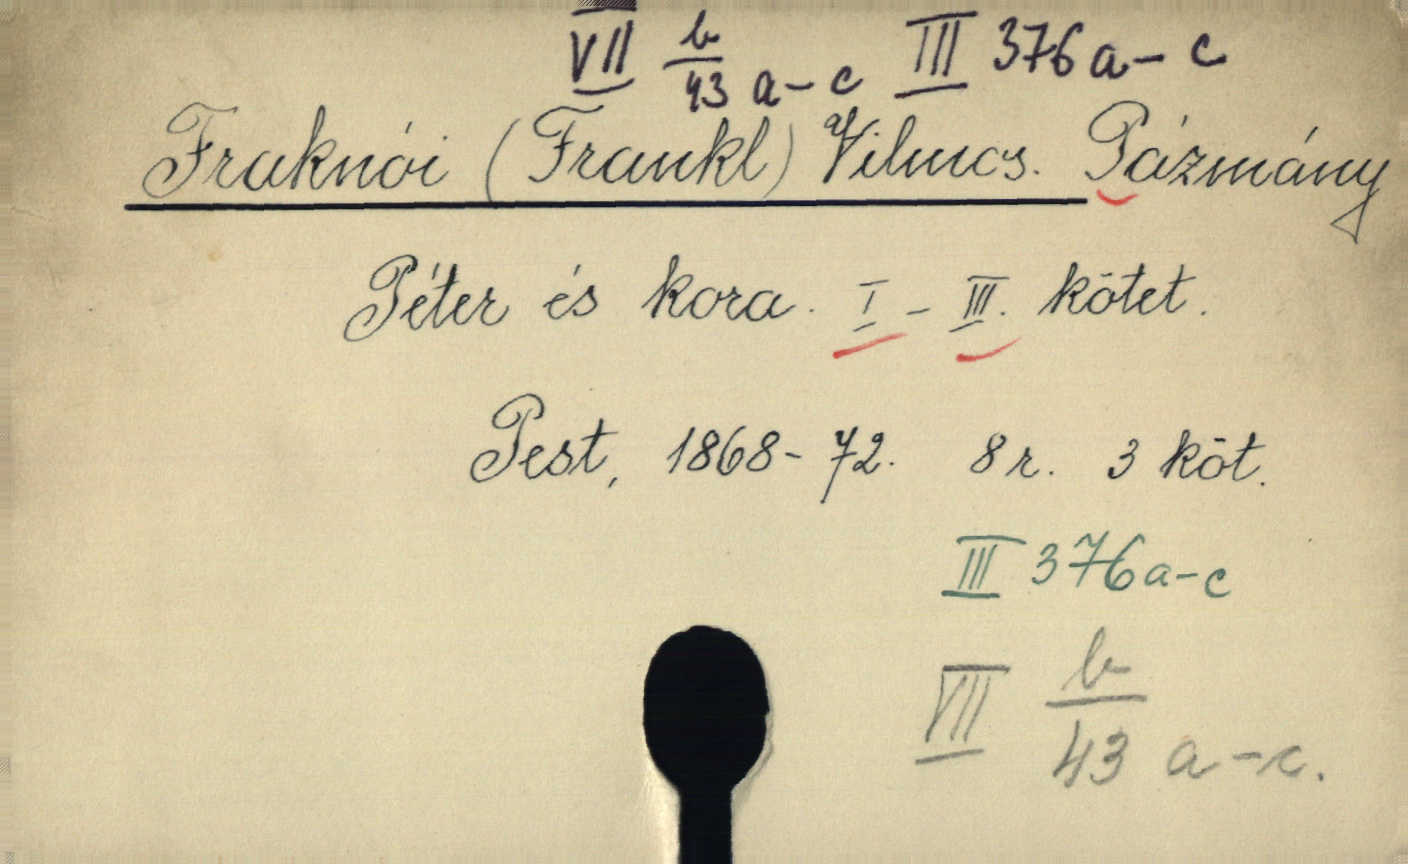 VII b/43 a-c III 376 a-c
Fraknói (Frankl) Vilmos. Pázmány
Péter és kora. I-III. kötet.
Pest, 1868-72. 8 r. 3 köt.
III 376 a-c
VII b/43 a-c.